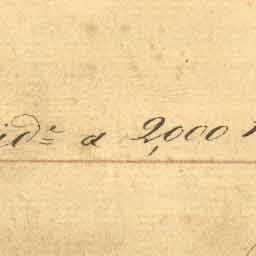 id.ᵉ a 2,000